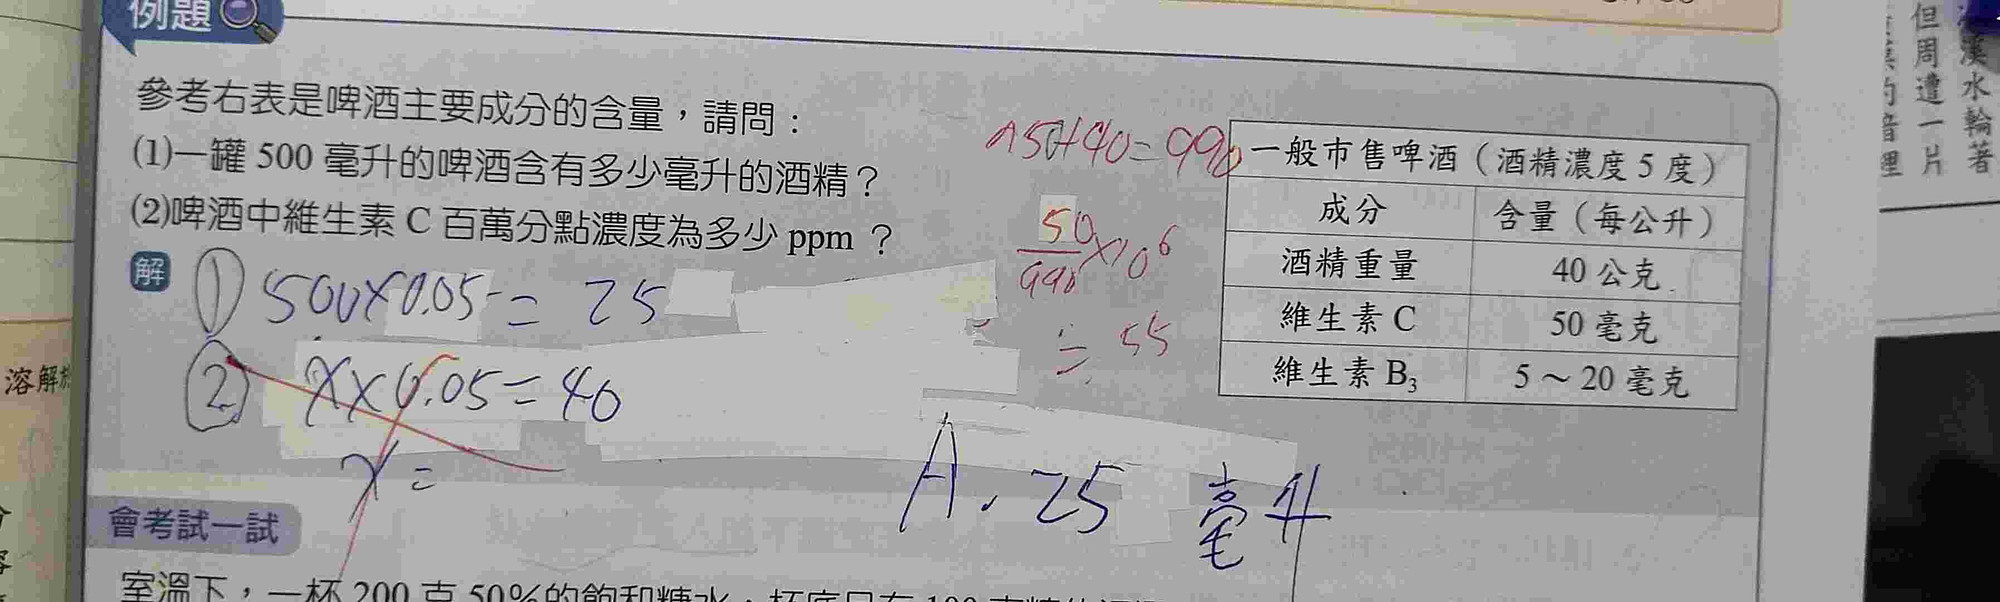 例題
參考右表是啤酒主要成分的含量，請問：
(1)一罐 500 毫升的啤酒含有多少毫升的酒精？
(2)啤酒中維生素 C 百萬分點濃度為多少 ppm ？
解
① 500×0.05=25
② X×0.05=40
X=
950+40=990
50
990 ×10⁶
≒55
A. 25 毫升
一般市售啤酒（酒精濃度 5 度）
成分 含量（每公升）
酒精重量 40 公克
維生素 C 50 毫克
維生素 B₃ 5～20 毫克
會考試一試
室溫下，一杯 200 克 50%的飽和糖水，杯底只有 100
溶解
溪水輪著
但周遭一片